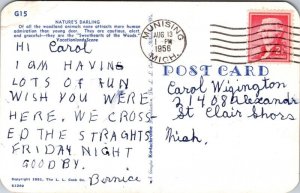 G15
NATURE'S DARLING
Of all the woodland animals none attracts more human
attention than young deer. They are cautious, alert
and graceful—they are the "Sweethearts of the Woods."
Vacationland Scene
MUNISING
AUG 13
1956
MICH.
HI Carol
I AM HAVING
LOTS OF FUN
WISH YOU WERE
HERE. WE CROSS-
ED THE STRAGHT
FRIDAY NIGHT
GOODBY.
Bernice
POST CARD
Carol Wigington
21408 Alexandr
St Clair Shors
Mich.
Copyright 1951, The L. L. Cook Co.